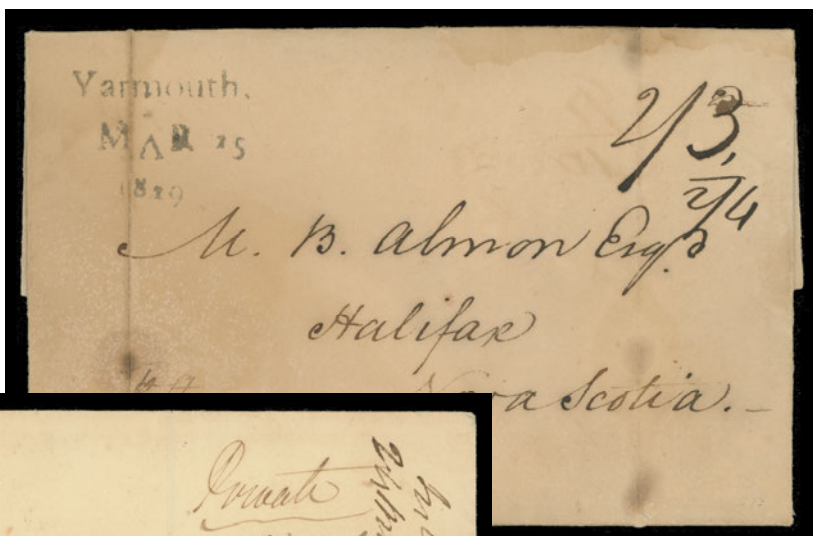 Yarmouth.
MAR 25
1829
2/3,
2/4
M. B. Almon Esqr
Halifax
Nova Scotia.
Private